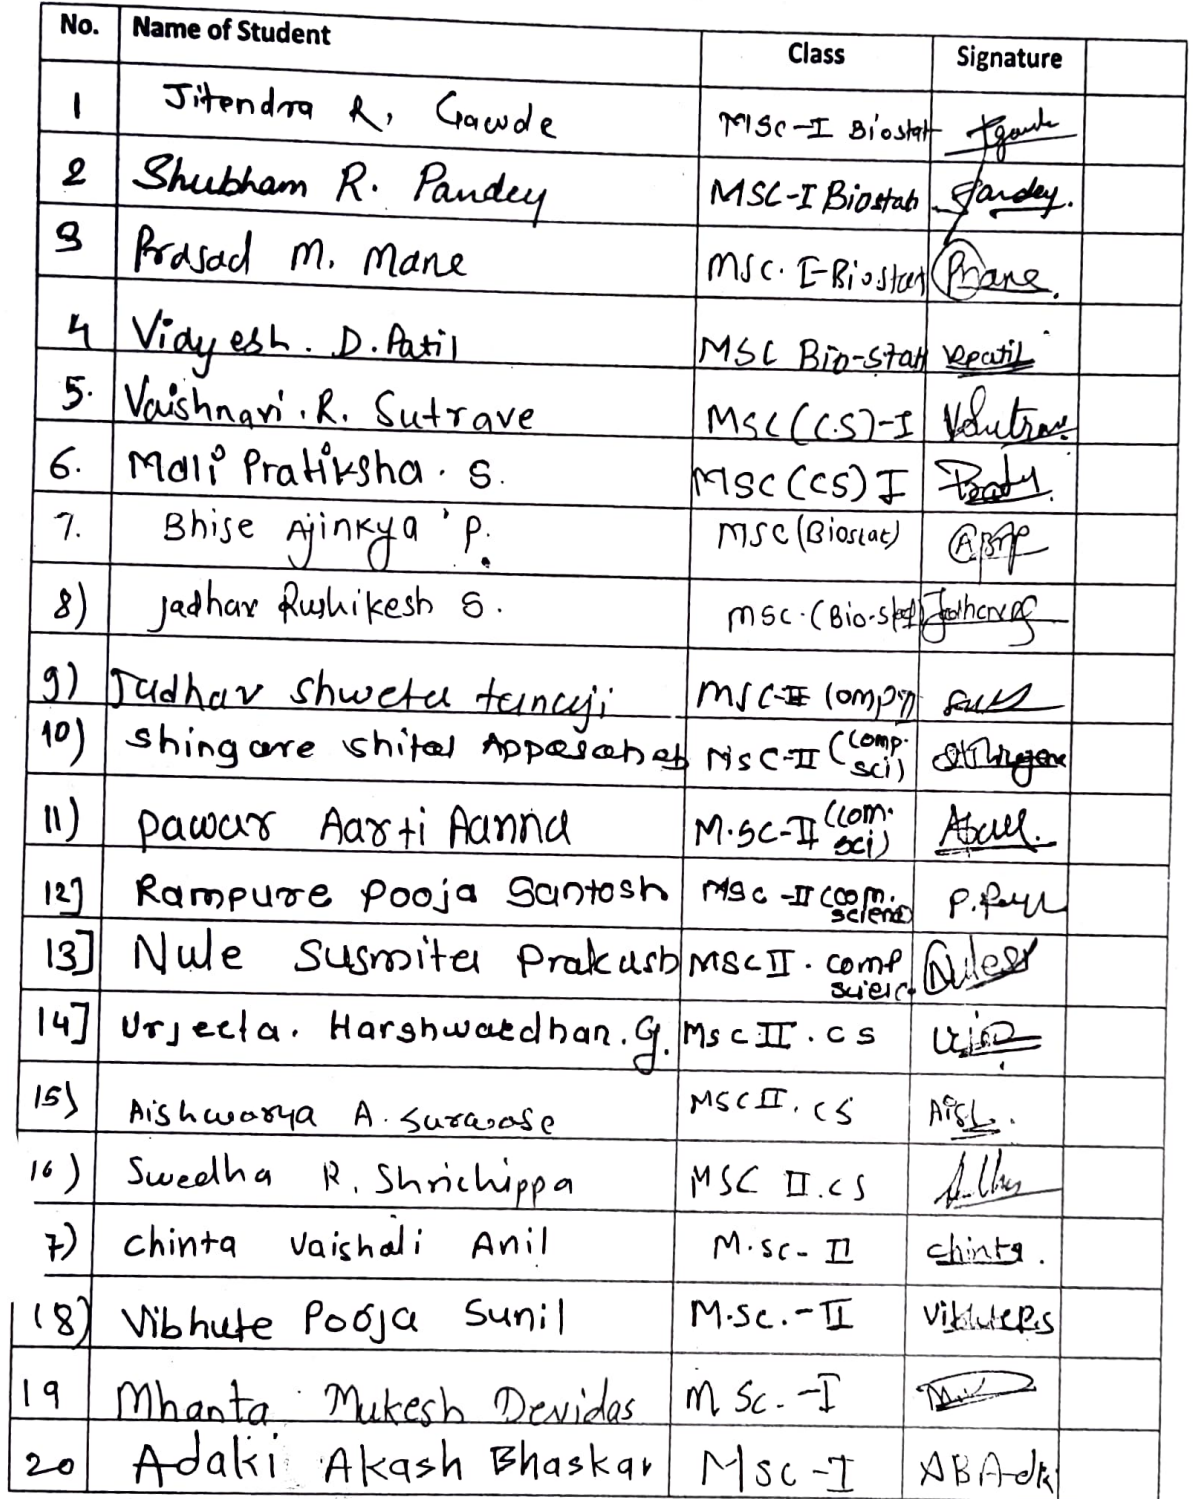 No. Name of Student Class Signature
1 Jitendra R. Gawde MSC-I Biostat
2 Shubham R. Pandey MSC-I Biostat Pandey.
3 Prasad M. Mane MSC. I-Biostat Mane.
4 Vidyesh. D. Patil MSC Bio-stat VDPatil
5. Vaishnavi. R. Sutrave MSC (C.S)-I
6. Mali Pratiksha. S. MSC (CS) I
7. Bhise Ajinkya P. MSC (Biostat)
8) Jadhav Rushikesh S. MSC. (Bio-stat)
9) Jadhav Shweta tanaji MSC-II
10) Shingare Shital Appasaheb MSC-II (Comp. sci)
11) Pawar Aarti Aanna M.SC-II (Com. sci)
12] Rampure Pooja Santosh MSC-II
13] Nule Susmita Prakash MSC II. comp
14] Urjeeta. Harshwardhan. G. MSC II. CS
15) Aishwarya A. Surawase MSC II. CS Aish.
16) Swedha R. Shrichippa MSC II. CS
7) Chinta Vaishali Anil M.SC- II Chinta.
18) Vibhute Pooja Sunil M.Sc.-II VibhutePS
19 Mhanta Mukesh Devidas M Sc.-I
20 Adaki Akash Bhaskar MSC-I